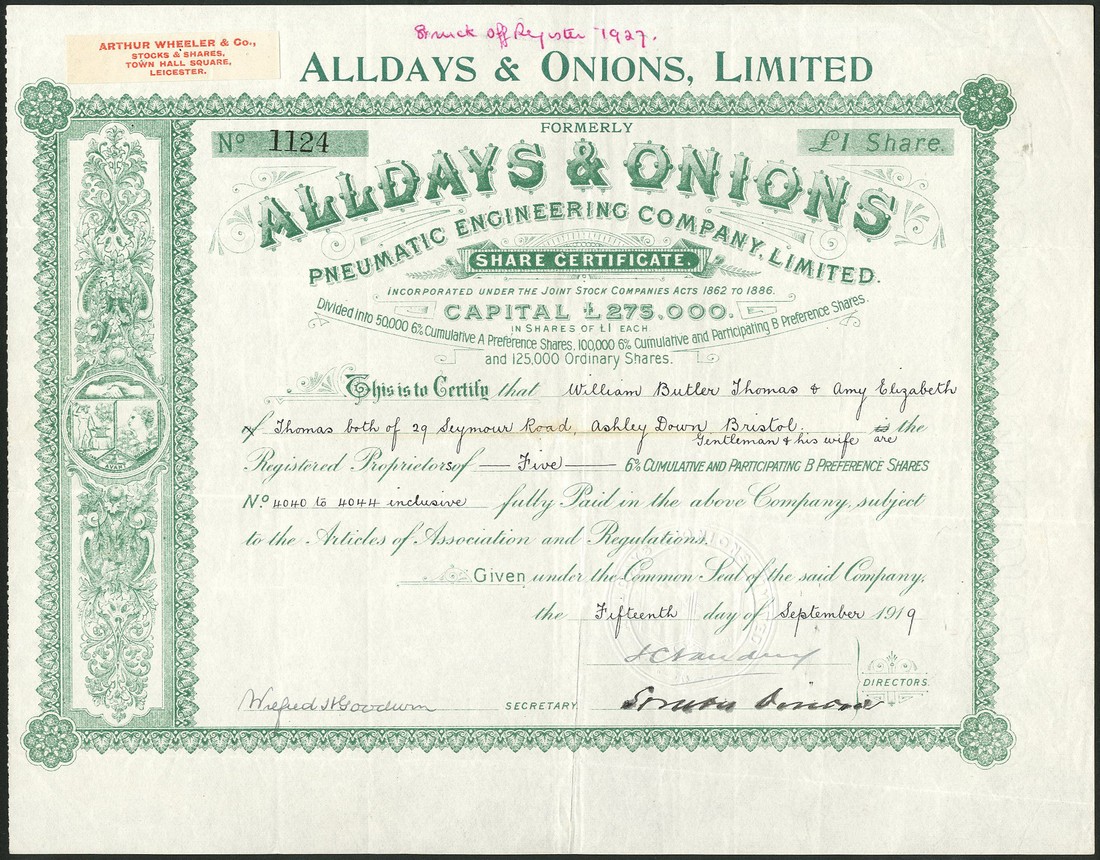 Struck off Register 1927.
ARTHUR WHEELER & Co.,
STOCKS & SHARES,
TOWN HALL SQUARE,
LEICESTER.
ALLDAYS & ONIONS, LIMITED
FORMERLY
No 1124
£1 Share.
ALLDAYS & ONIONS
PNEUMATIC ENGINEERING COMPANY, LIMITED.
SHARE CERTIFICATE.
INCORPORATED UNDER THE JOINT STOCK COMPANIES ACTS 1862 TO 1886.
CAPITAL £275,000.
IN SHARES OF £1 EACH
Divided into 50,000 6% Cumulative A Preference Shares, 100,000 6% Cumulative and Participating B Preference Shares.
and 125,000 Ordinary Shares.
This is to Certify that William Butler Thomas & Amy Elizabeth
of Thomas both of 29 Seymour Road, Ashley Down Bristol. is the
Gentleman & his wife are
Registered Proprietors of Five 6% CUMULATIVE AND PARTICIPATING B PREFERENCE SHARES
No. 4040 to 4044 inclusive fully Paid in the above Company, subject
to the Articles of Association and Regulations.
Given under the Common Seal of the said Company,
the Fifteenth day of September 1919
DIRECTORS.
Wilfred H Goodwin SECRETARY.